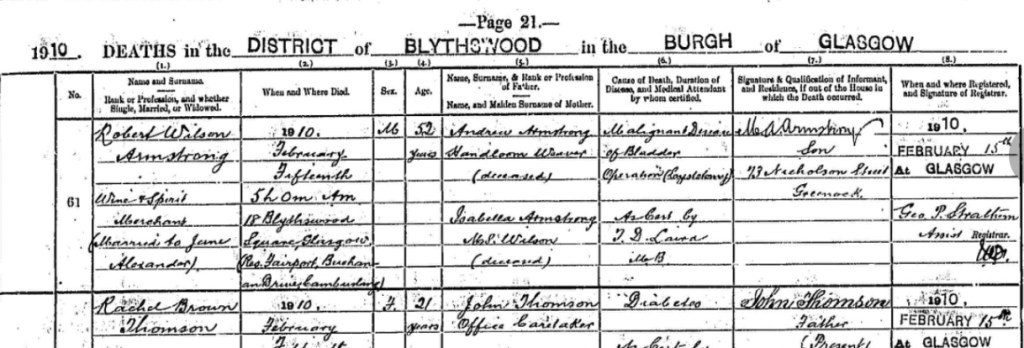 —Page 21.—
1910. DEATHS in the DISTRICT of BLYTHSWOOD in the BURGH of GLASGOW
No.
(1.)
Name and Surname.
Rank or Profession, and whether
Single, Married, or Widowed.
(2.)
When and Where Died.
(3.)
Sex.
(4.)
Age.
(5.)
Name, Surname, & Rank or Profession
of Father.
Name, and Maiden Surname of Mother.
(6.)
Cause of Death, Duration of
Disease, and Medical Attendant
by whom certified.
(7.)
Signature & Qualification of Informant,
and Residence, if out of the House in
which the Death occurred.
(8.)
When and where Registered,
and Signature of Registrar.
61
Robert Wilson
Armstrong
Wine & Spirit
Merchant
(Married to Jane
Alexander)
1910.
February
Fifteenth
5h 0m Am
18 Blythswood
Square, Glasgow.
(Res. Fairport, Buchan-
an Drive, Cambuslang)
M
52
years
Andrew Armstrong
Handloom Weaver
(deceased)
Isabella Armstrong
M.S. Wilson
(deceased)
Malignant Disease
of Bladder
Operation (Cystotomy)
As Cert by
T. D. Laird
M B
Armstrong
Son
73 Nicholson Street
Greenock.
1910.
FEBRUARY 15th
At GLASGOW
Geo. P. Strathern
Assist Registrar.
Rachel Brown
Thomson
1910.
February
F.
21
years
John Thomson
Office Caretaker
Diabetes
As Cert by
John Thomson
Father
(Present)
1910.
FEBRUARY 15th
At GLASGOW